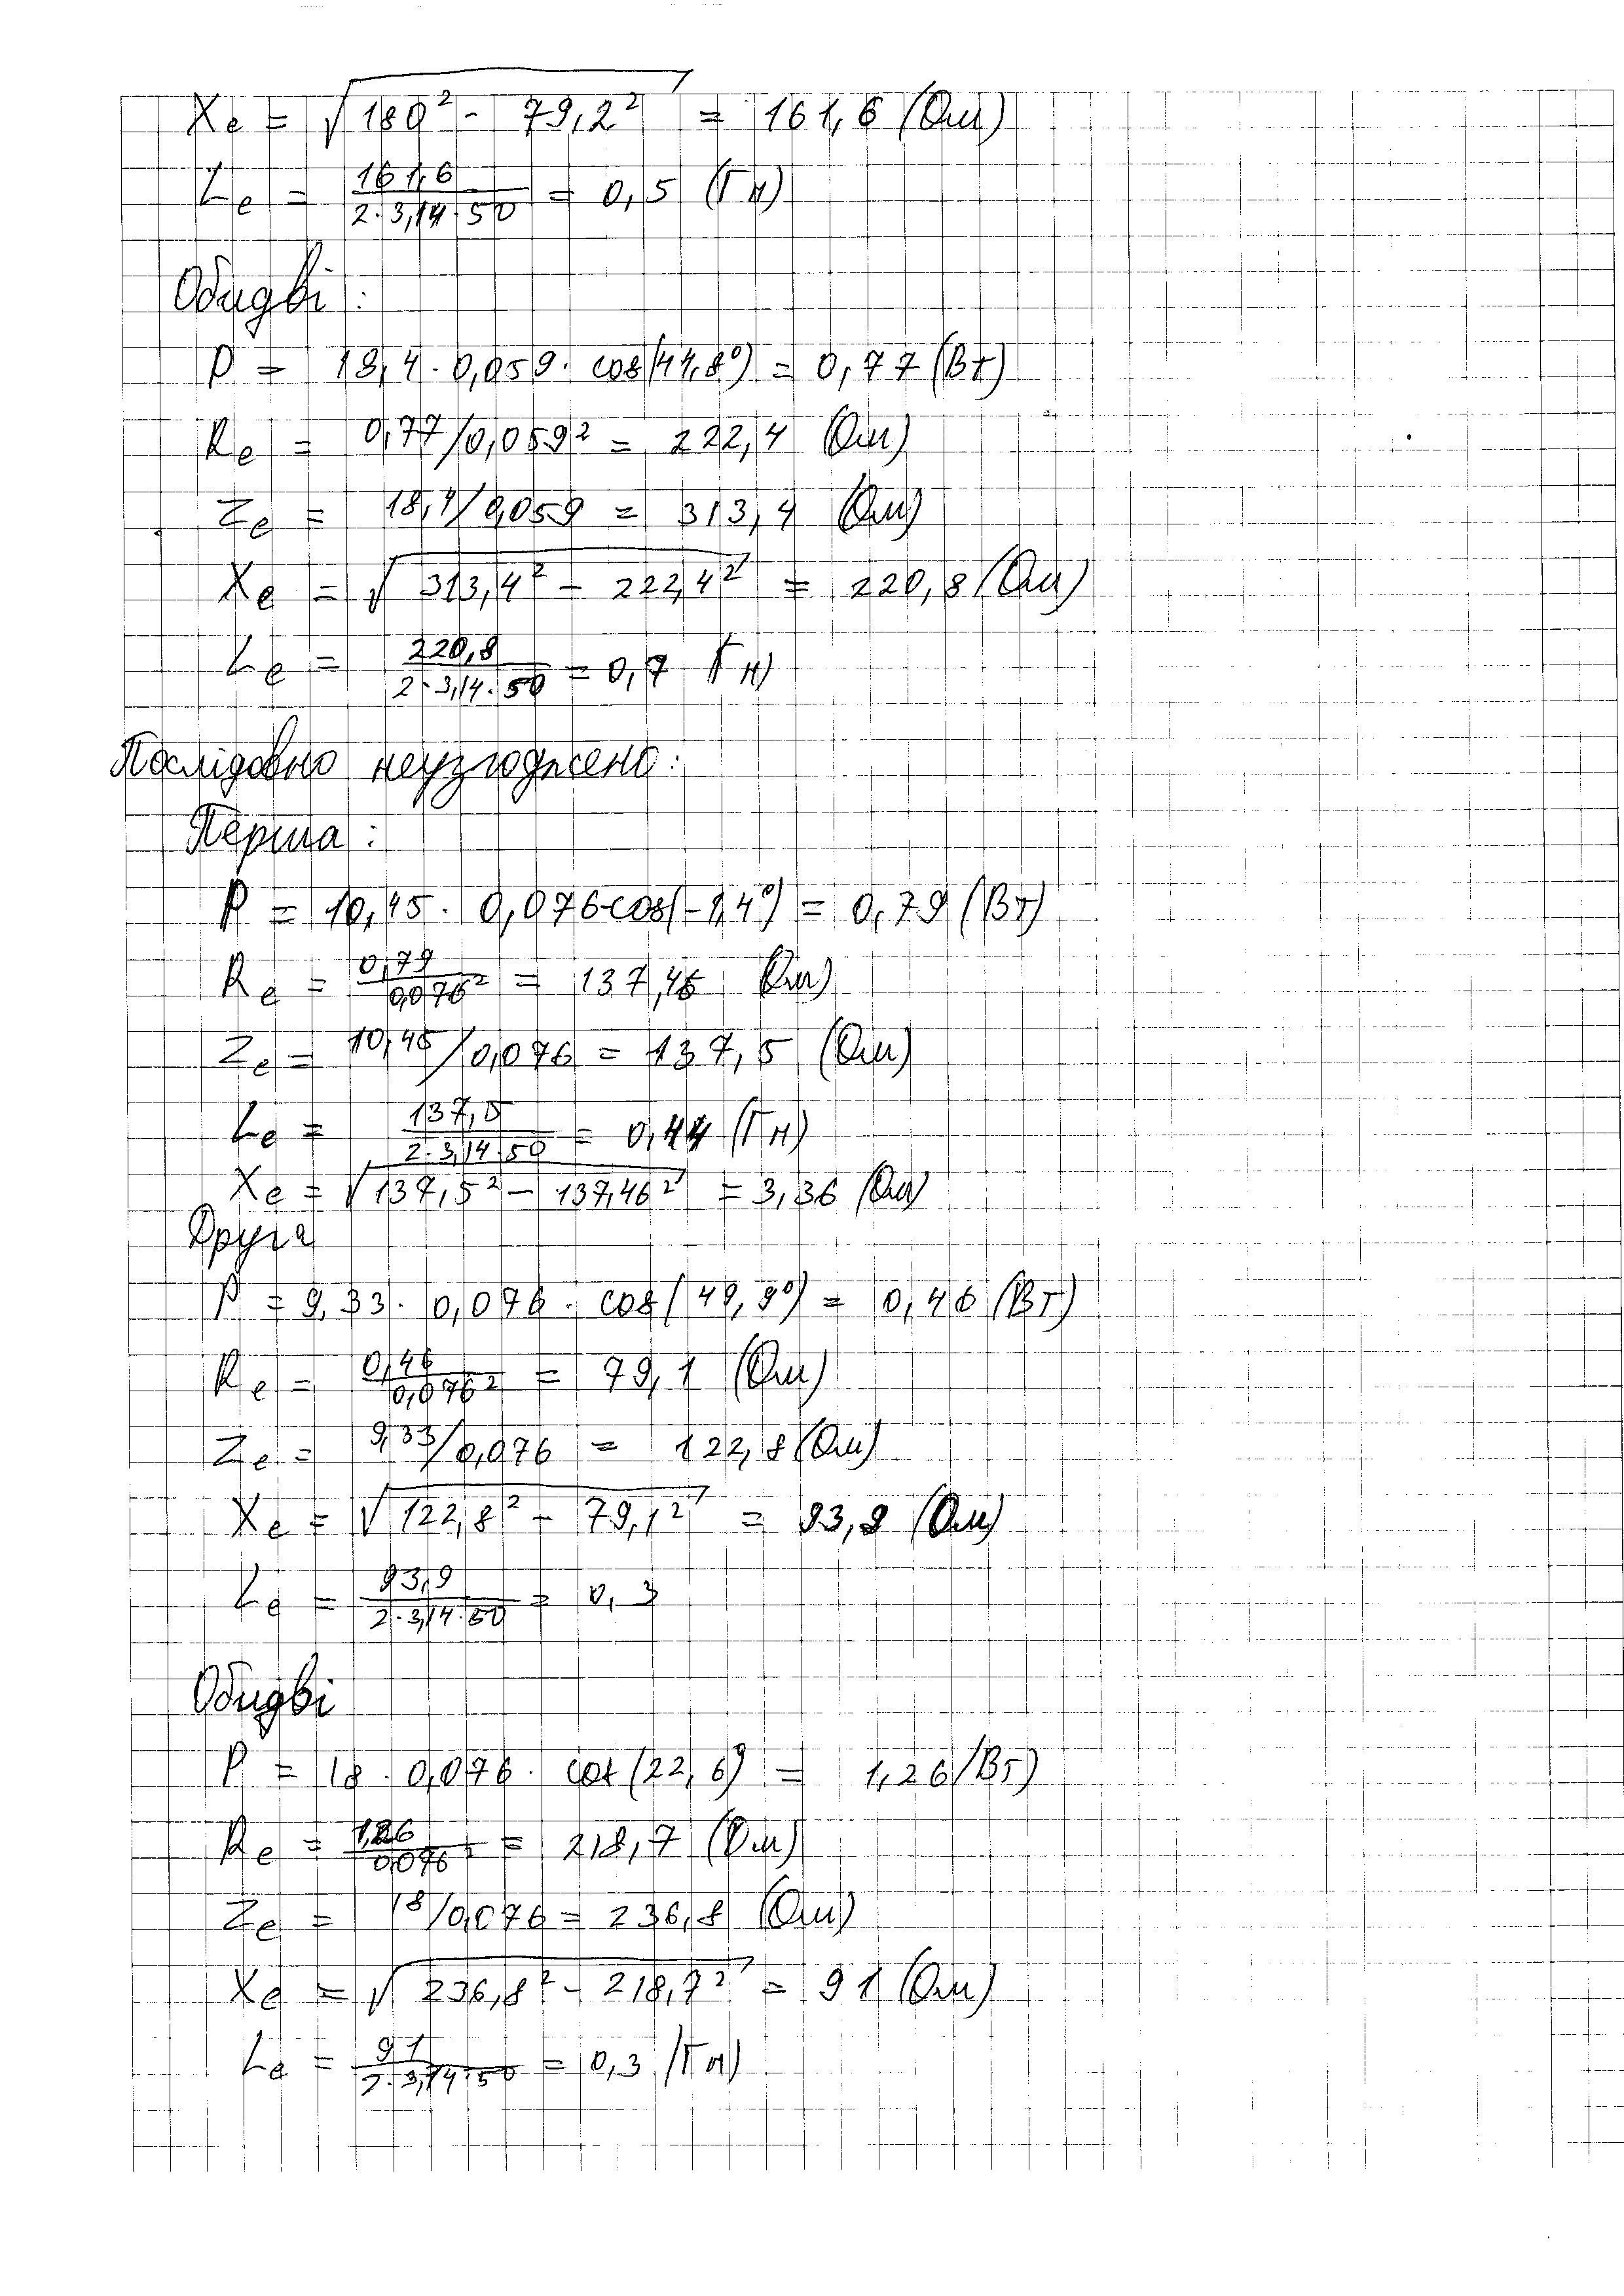 Xe = √180² - 79,2² = 161,6 (Ом)
Le = 161,6 / 2·3,14·50 = 0,5 (Гн)
Обидві:
P = 18,4 · 0,059 · cos(44,8°) = 0,77 (Вт)
Re = 0,77/0,059² = 222,4 (Ом)
Ze = 18,4/0,059 = 313,4 (Ом)
Xe = √313,4² - 222,4² = 220,8 (Ом)
Le = 220,8 / 2·3,14·50 = 0,7 Гн)
Послідовно неузгоджено:
Перша:
P = 10,45 · 0,076·cos(-1,4°) = 0,79 (Вт)
Re = 0,79 / 0,076² = 137,46 (Ом)
Ze = 10,45/0,076 = 137,5 (Ом)
Le = 137,5 / 2·3,14·50 = 0,44 (Гн)
Xe = √137,5² - 137,46² = 3,36 (Ом)
Друга
P = 9,33 · 0,076 · cos(49,9°) = 0,46 (Вт)
Re = 0,46 / 0,076² = 79,1 (Ом)
Ze = 9,33/0,076 = 122,8 (Ом)
Xe = √122,8² - 79,1² = 93,9 (Ом)
Le = 93,9 / 2·3,14·50 = 0,3
Обидві
P = 18 · 0,076 · cos(22,6°) = 1,26 (Вт)
Re = 1,26 / 0,076² = 218,7 (Ом)
Ze = 18/0,076 = 236,8 (Ом)
Xe = √236,8² - 218,7² = 91 (Ом)
Le = 91 / 2·3,14·50 = 0,3 (Гн)